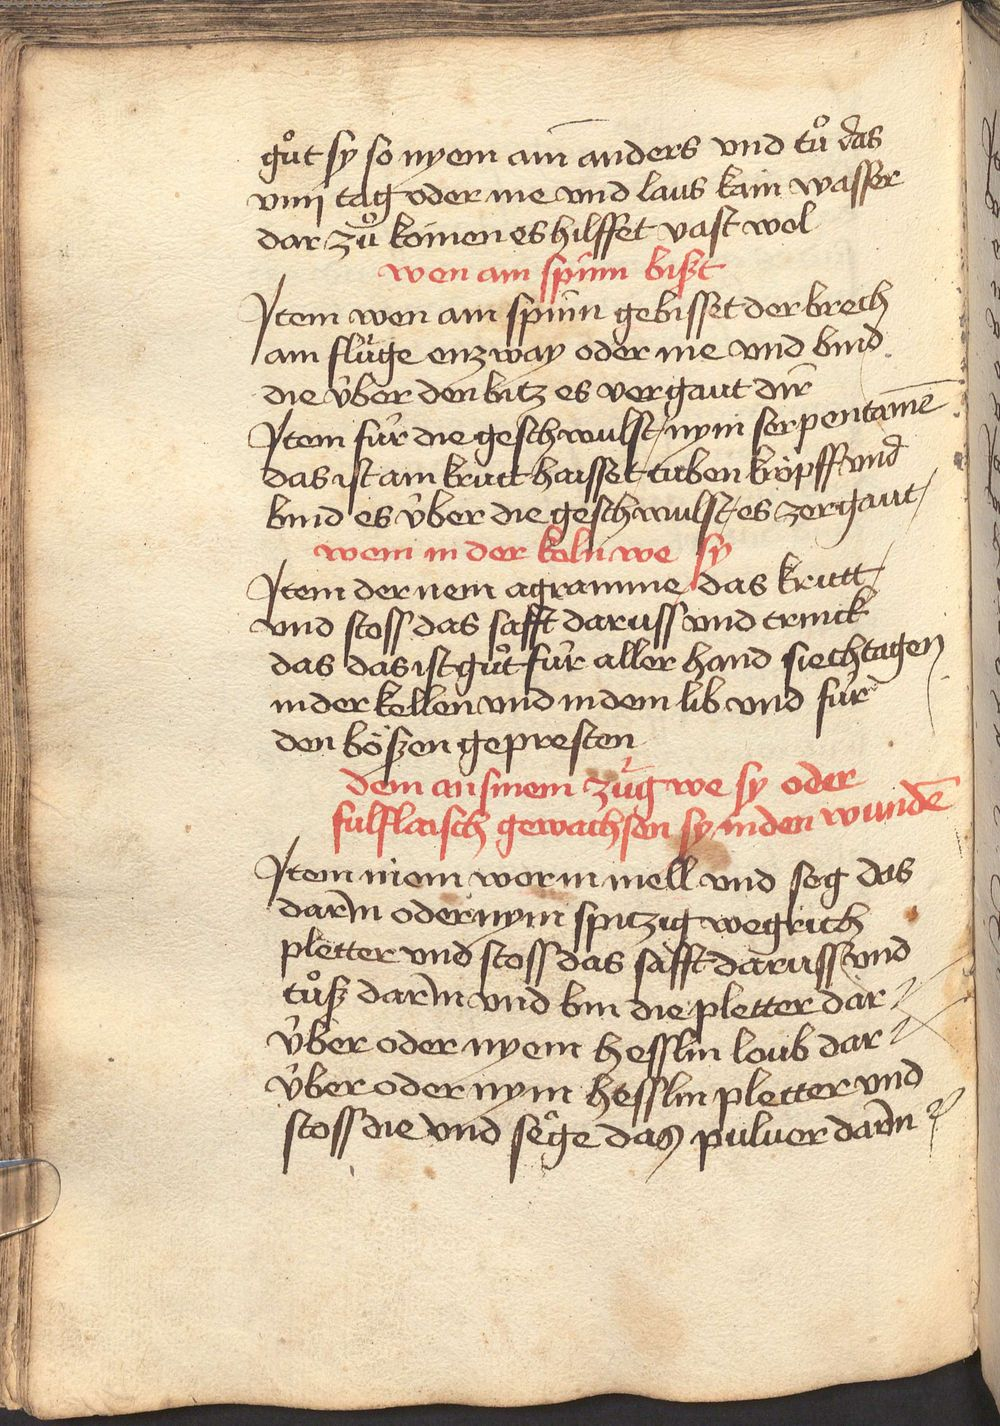 gůt sy so nyem ain anders vnd tů das
viiij tag oder me vnd laus kain wasser
dar zů komen es hilffet vast wol
wen ain spinn bißt
Item wen ain spinn gebisset der brech
ain flúge enzway oder me vnd bind
die v́ber den bitz es vergaut dir
Item fúr die geschwulst / nym serpentaniē
das ist ain krutt haisset tuben kröpff vnd
bind es v́ber die geschwulst / es zergaut /
wem in der keln we sy
Item der nem agramnie das krutt /
vnd stoss das safft daruss vnd trinck
das das ist gůt fúr aller hand siechtagen
in der kellen vnd in dem lib vnd fúr
den bößen gepresten
dem an sinem zúg we sy oder
fulflaisch gewachsen sy in den wundē
Item niem worm mell vnd seg das
darin oder nym spitzig wegrich
pletter vnd stoss das safft daruss vnd
tůß darin vnd bin die pletter dar
v́ber oder nyem hesslin loub dar
v́ber oder nym hesslin pletter vnd
stoss die vnd sege das puluer darin